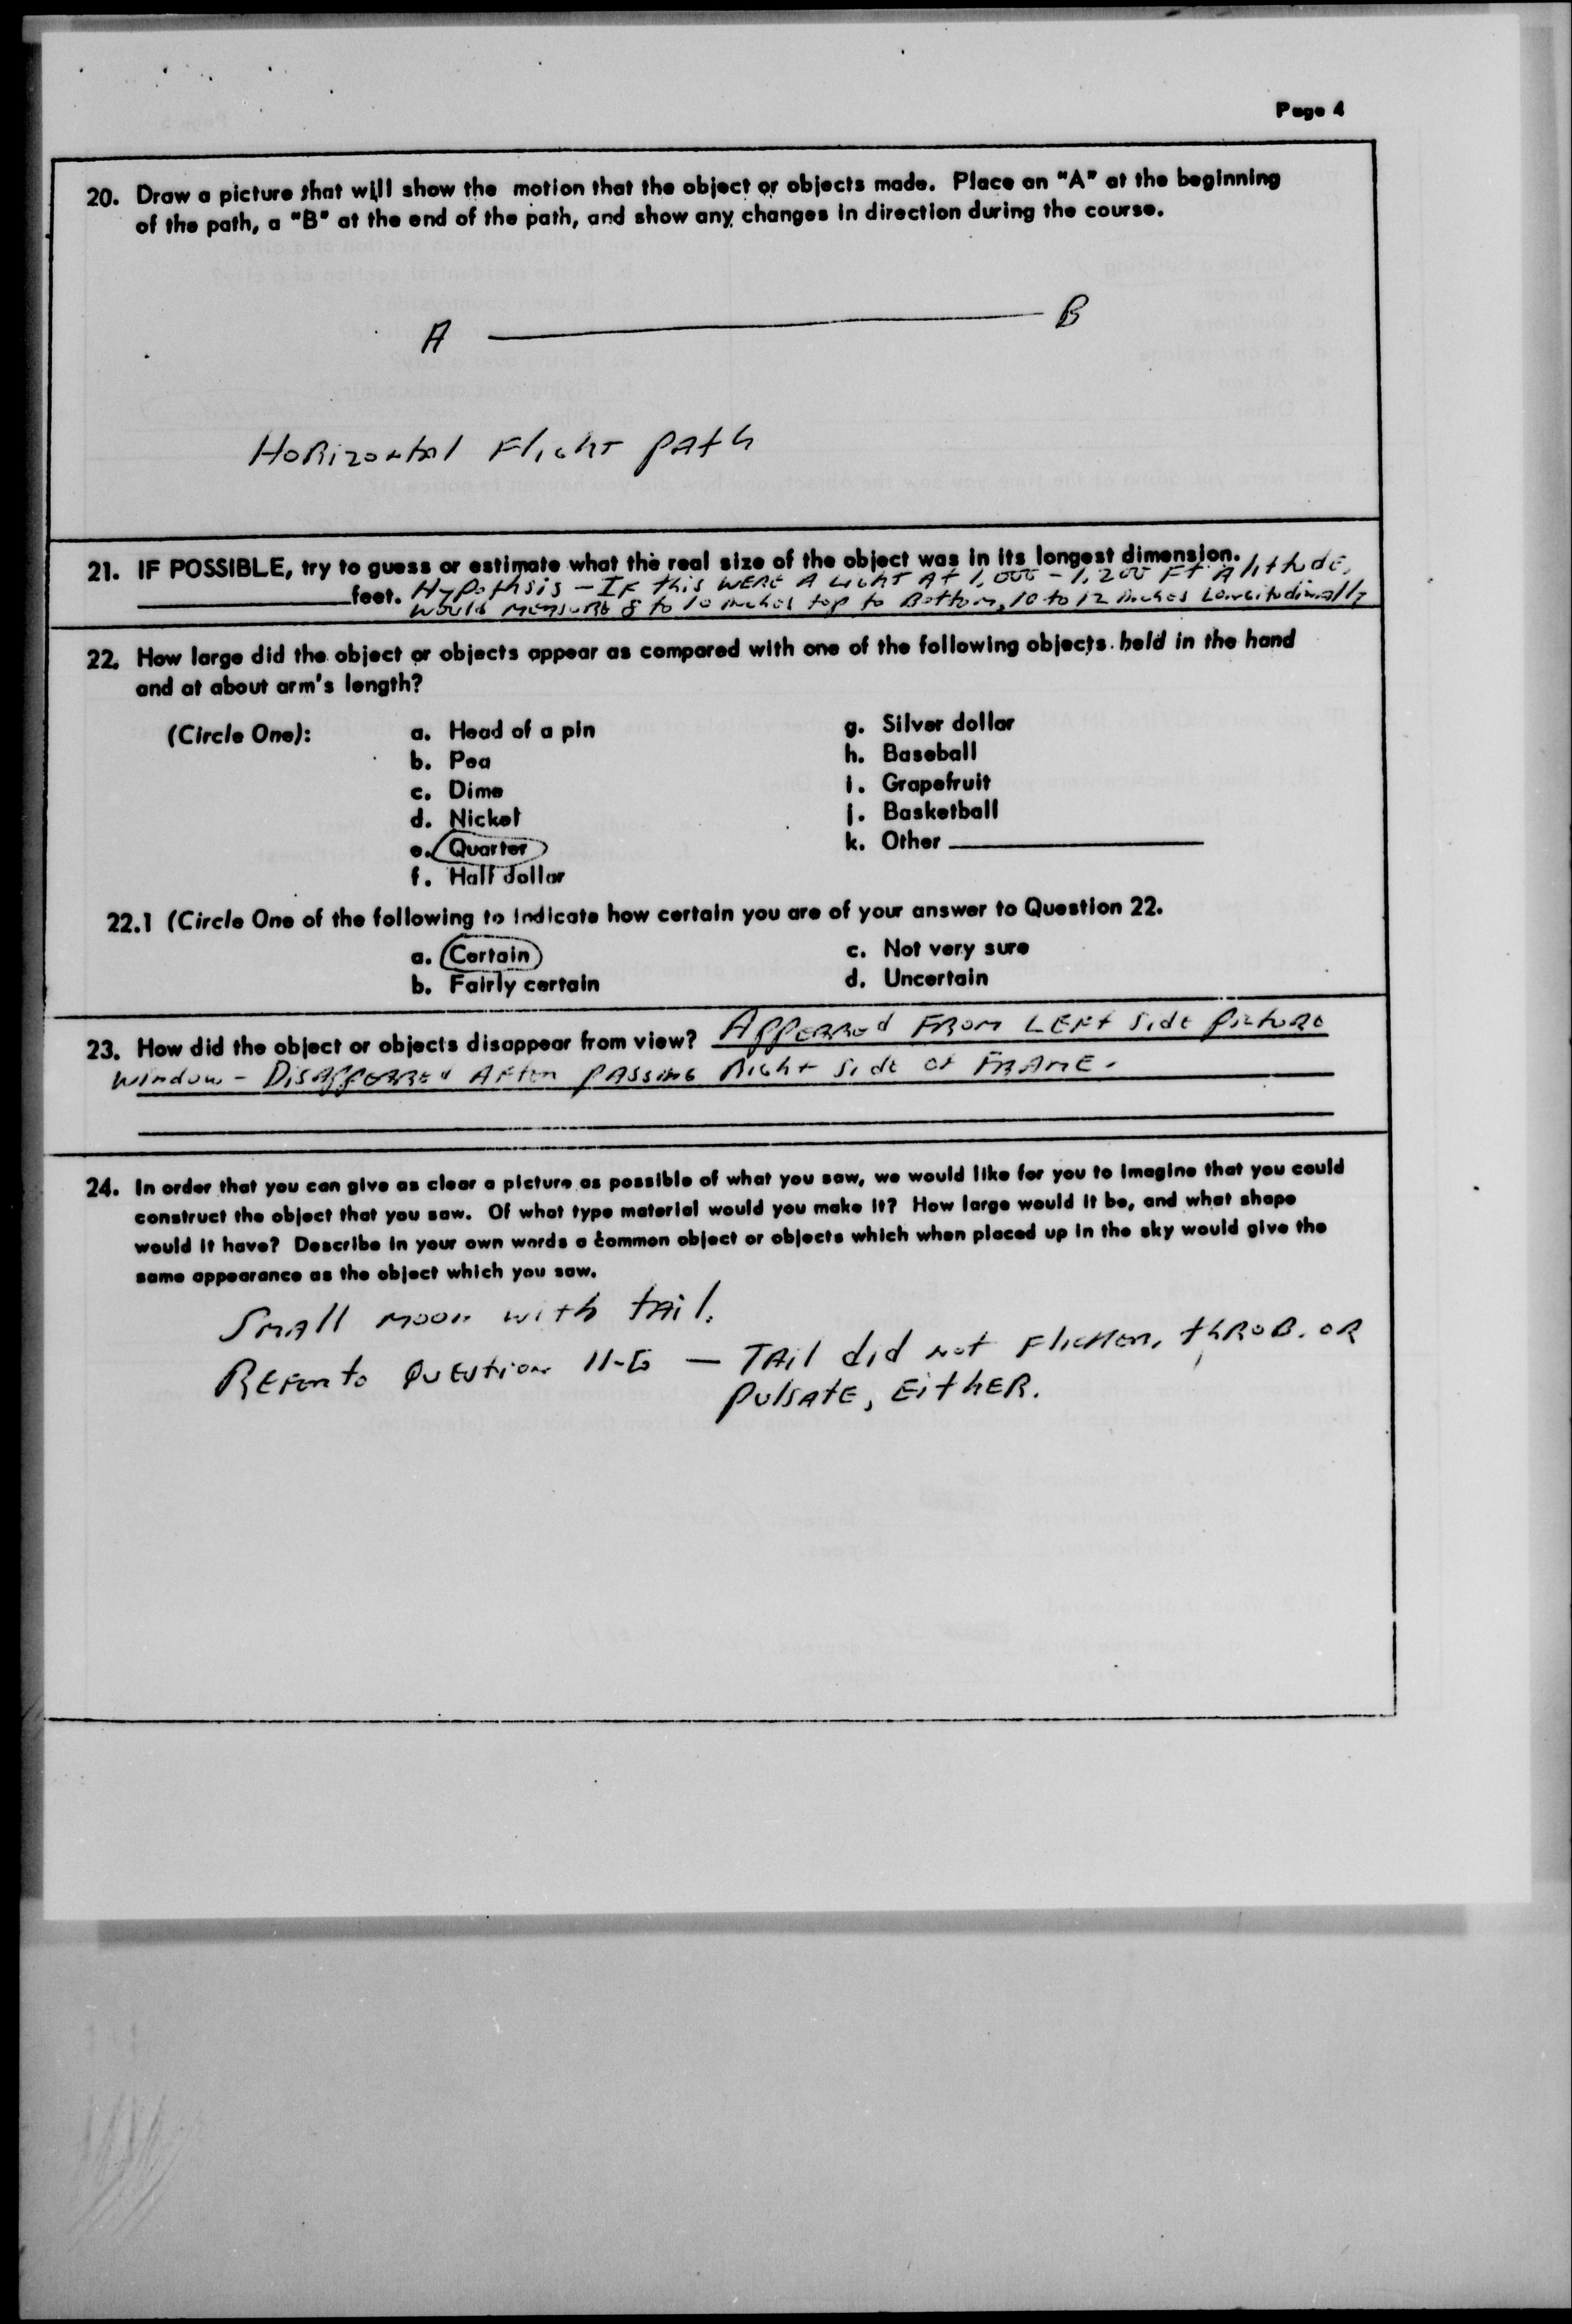 Page 4
20. Draw a picture that will show the motion that the object or objects made. Place an "A" at the beginning
of the path, a "B" at the end of the path, and show any changes in direction during the course.
A B
Horizontal Flight path
21. IF POSSIBLE, try to guess or estimate what the real size of the object was in its longest dimension.
feet. Hypothsis - If this were a light at 1,000 - 1,200 Ft Altitude,
would measure 8 to 10 inches top to bottom, 10 to 12 inches Longitudinally
22. How large did the object or objects appear as compared with one of the following objects held in the hand
and at about arm's length?
(Circle One): a. Head of a pin g. Silver dollar
b. Pea h. Baseball
c. Dime i. Grapefruit
d. Nickel j. Basketball
e. Quarter k. Other
f. Half dollar
22.1 (Circle One of the following to indicate how certain you are of your answer to Question 22.
a. Certain c. Not very sure
b. Fairly certain d. Uncertain
23. How did the object or objects disappear from view? Appeared from left side picture
window - Disappeared after passing right side of frame.
24. In order that you can give as clear a picture as possible of what you saw, we would like for you to imagine that you could
construct the object that you saw. Of what type material would you make it? How large would it be, and what shape
would it have? Describe in your own words a common object or objects which when placed up in the sky would give the
same appearance as the object which you saw.
Small moon with tail.
Refer to Question 11-G — Tail did not flicker, throb, or
pulsate, either.